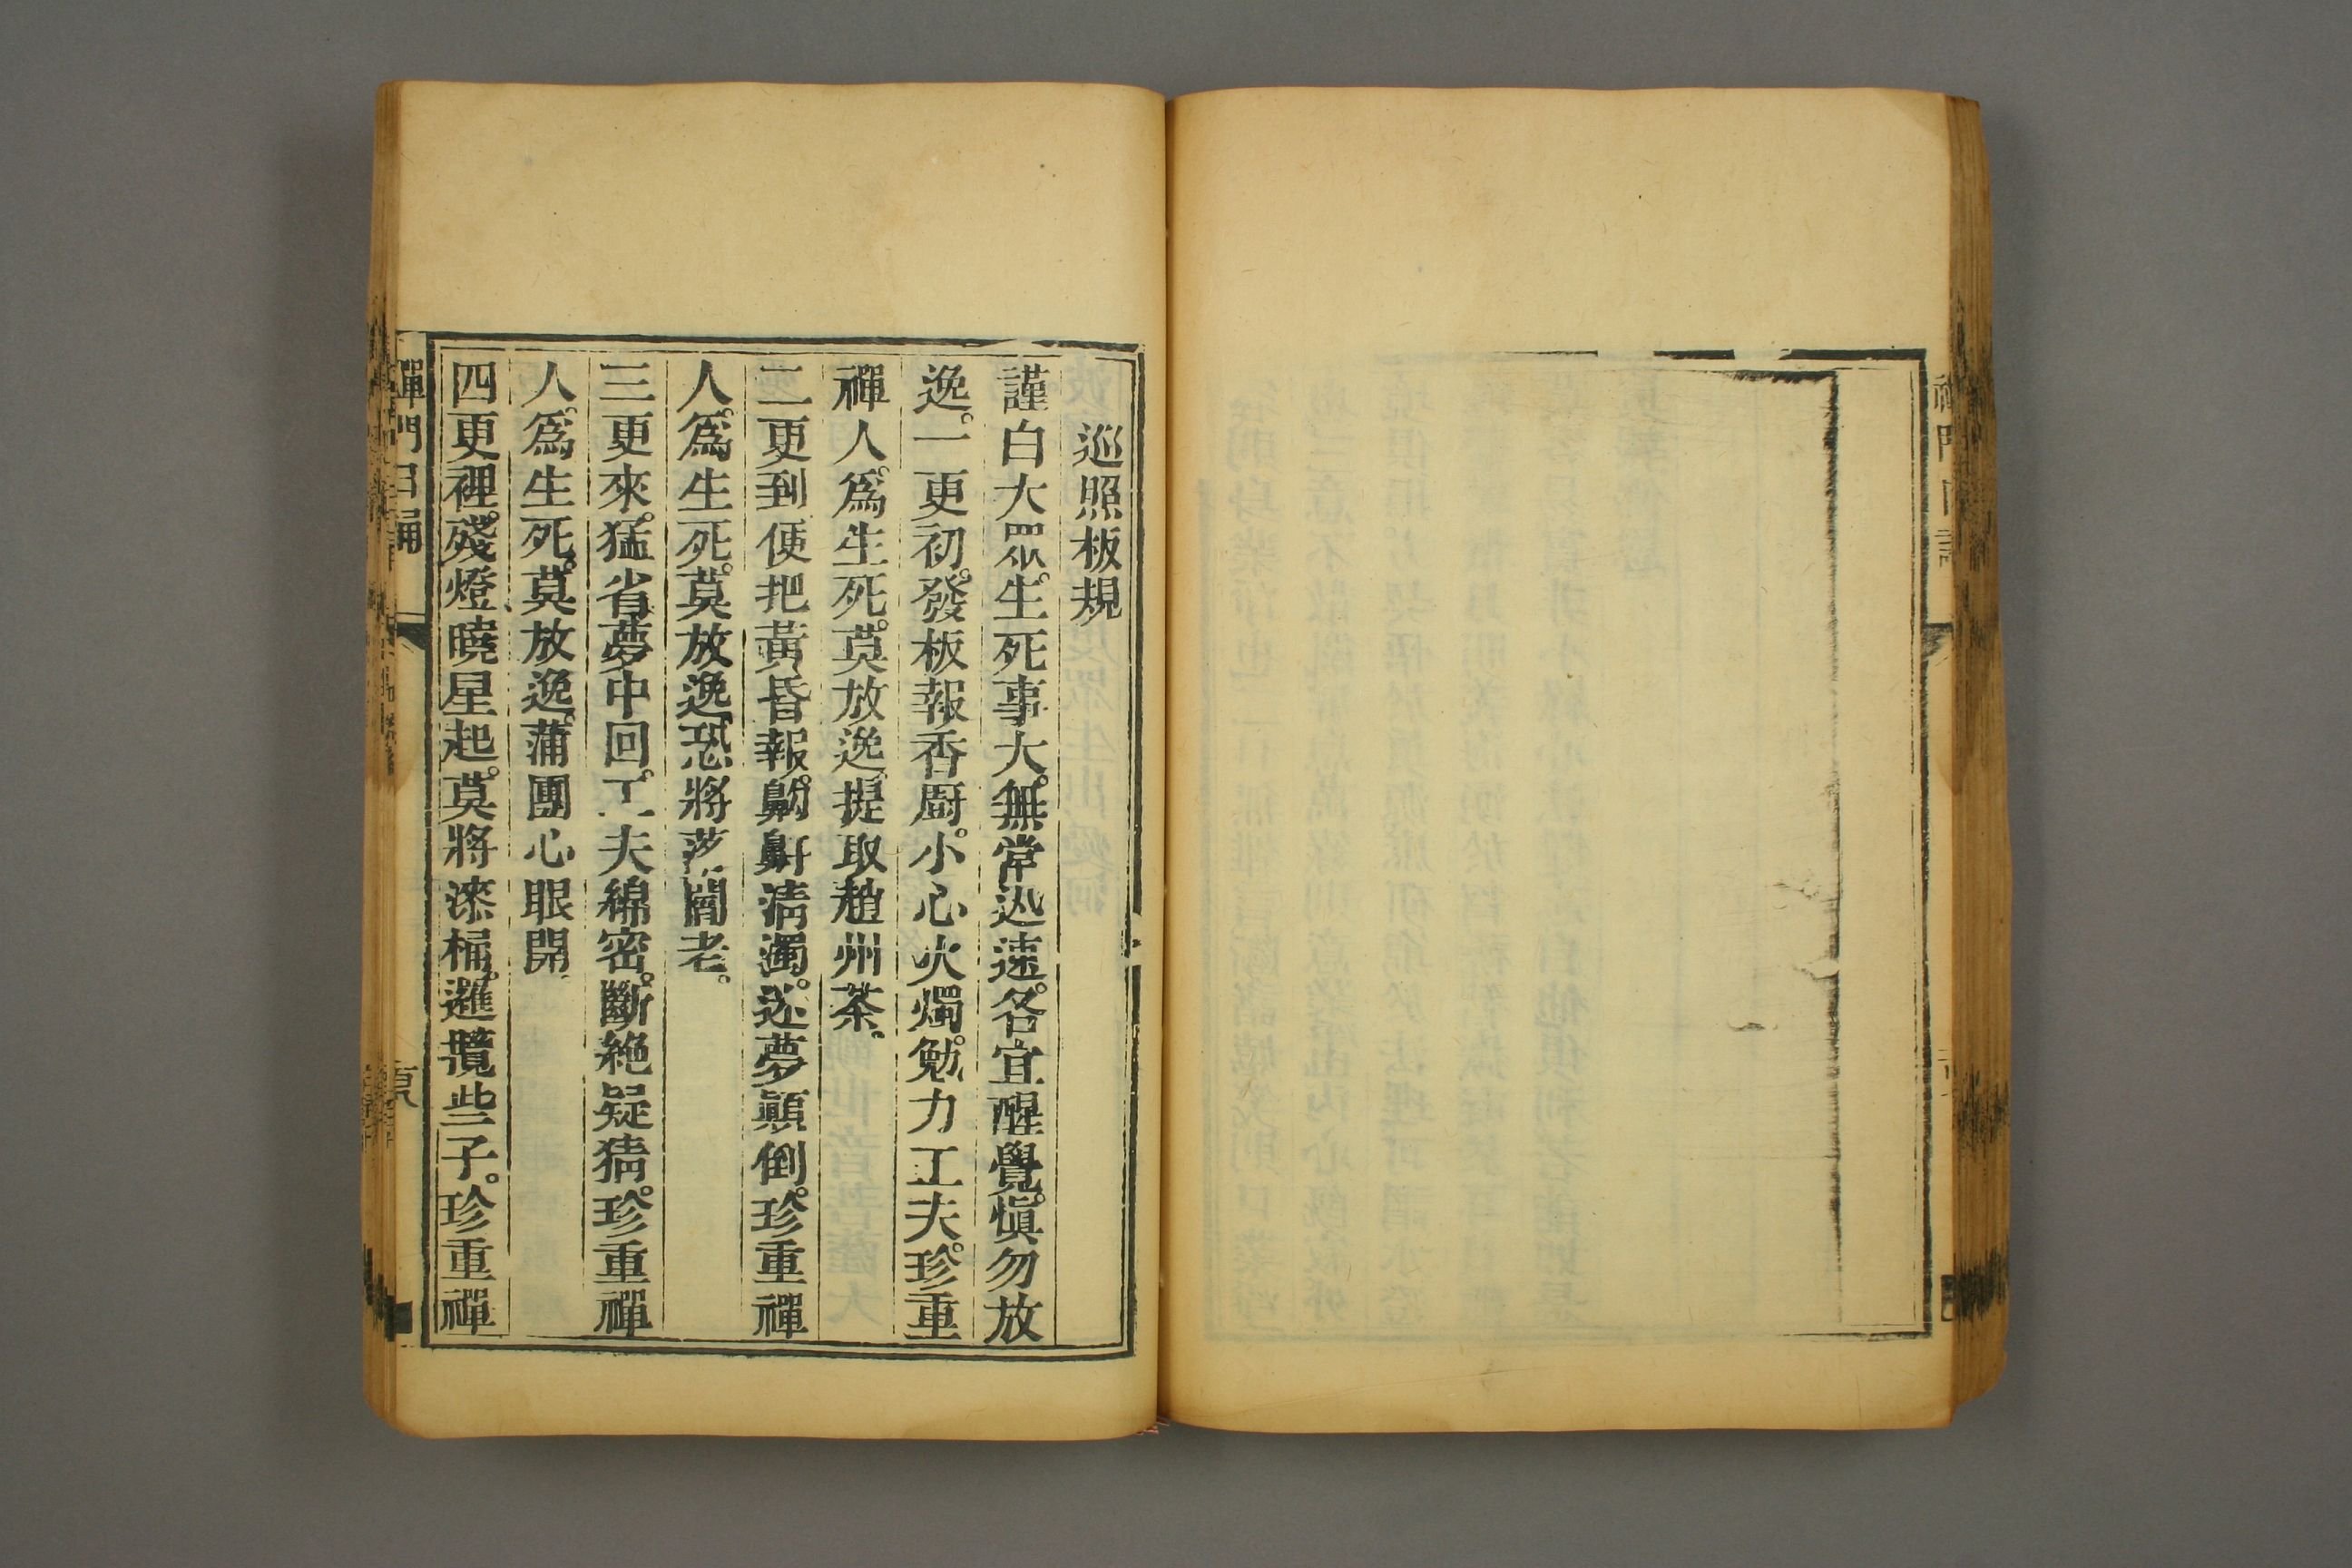 巡照板規
謹白大眾。生死事大。無常迅速。各宜醒覺。愼勿放
逸。一更初。發板報香廚。小心火燭。勉力工夫。珍重
禪人。爲生死。莫放逸。提取趙州茶。
二更到便把黃昏報。齁鼾淸濁。迷夢顚倒。珍重禪
人。爲生死。莫放逸。恐將落閻老。
三更來。猛省夢中回。工夫綿密。斷絶疑猜。珍重禪
人。爲生死。莫放逸。蒲團心眼開。
四更裡。殘燈曉星起。莫將漆桶。邋䟢些子。珍重禪
禪門日誦
百八